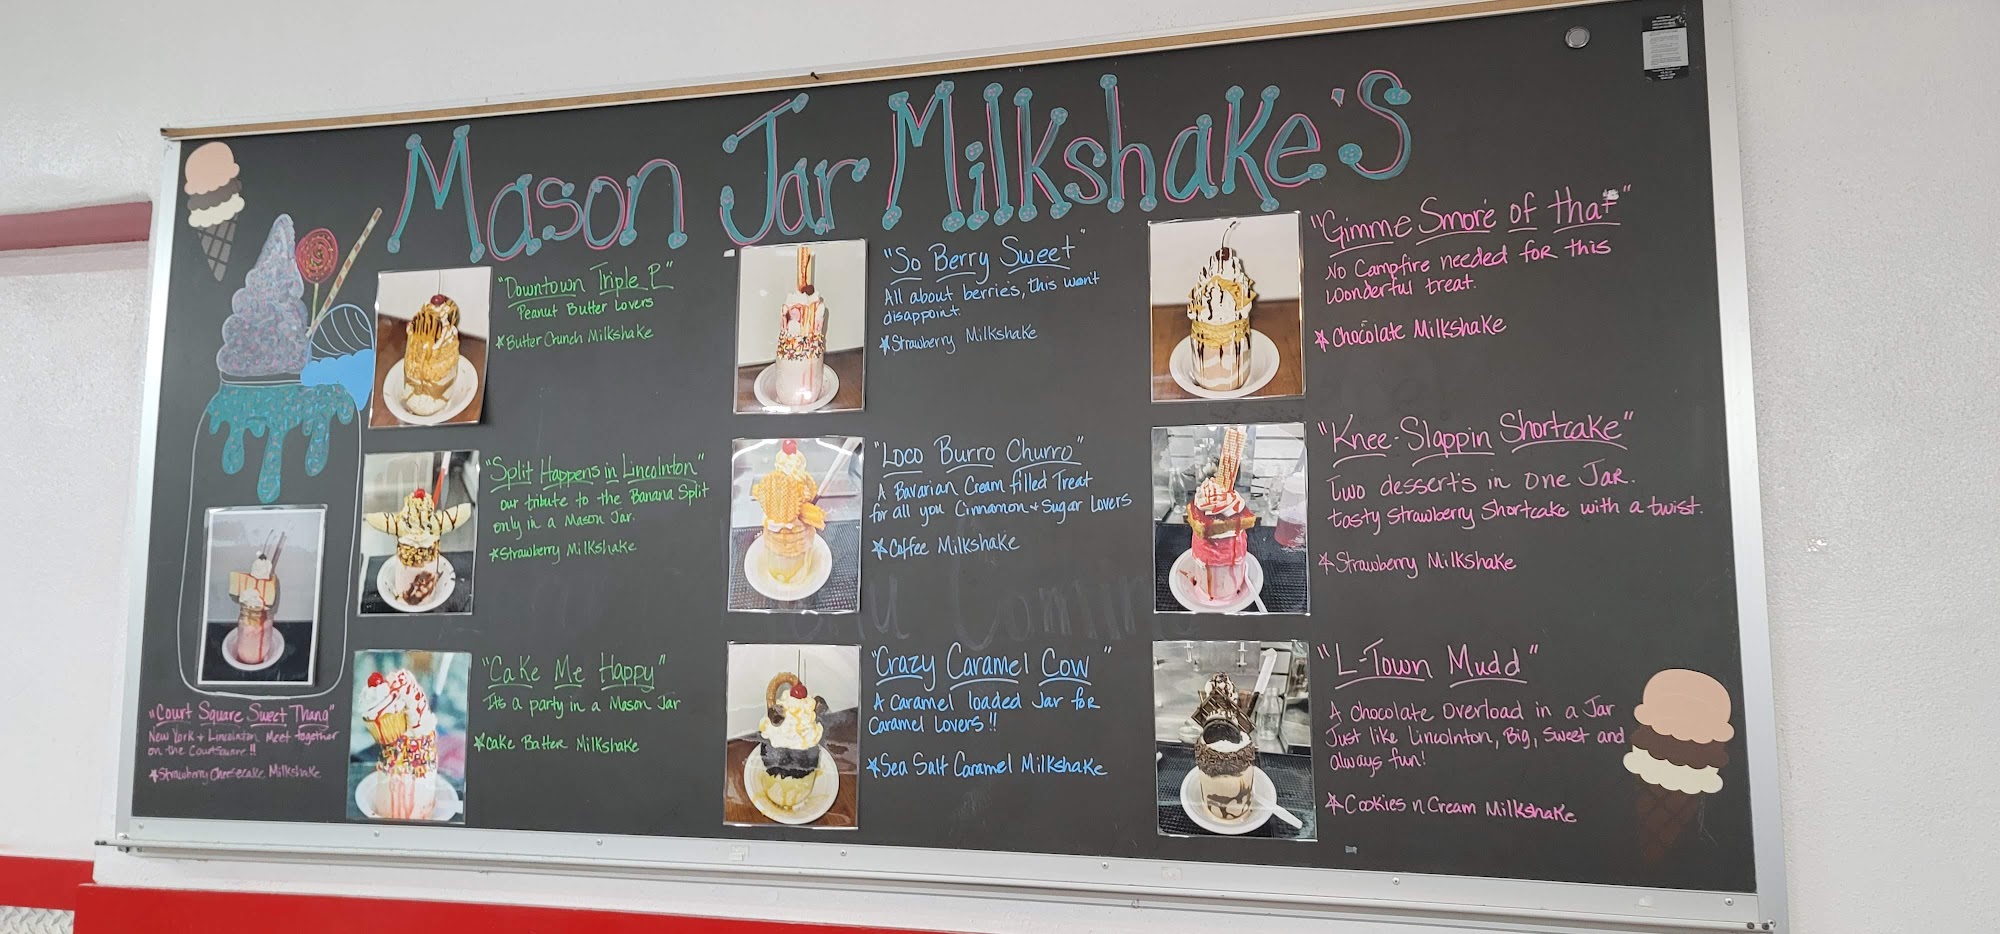 Mason Jar Milkshake's
"Downtown Triple P"
Peanut Butter Lovers
*Butter Crunch Milkshake
"Split Happens in Lincolnton"
our tribute to the Banana Split
only in a Mason Jar.
*Strawberry Milkshake
"Cake Me Happy"
It's a party in a Mason Jar
*Cake Batter Milkshake
"Court Square Sweet Thang"
New York + Lincolnton Meet together
on the Courtsquare!!
*Strawberry Cheesecake Milkshake
"So Berry Sweet"
All about berries, this won't
disappoint
*Strawberry Milkshake
"Loco Burro Churro"
A Bavarian Cream filled Treat
for all you Cinnamon + Sugar Lovers
*Coffee Milkshake
"Crazy Caramel Cow"
A Caramel loaded Jar for
Caramel Lovers!!
*Sea Salt Caramel Milkshake
"Gimme Smore of that"
No Campfire needed for this
wonderful treat.
*Chocolate Milkshake
"Knee-Slappin Shortcake"
Two desserts in one Jar.
tasty Strawberry Shortcake with a twist.
*Strawberry Milkshake
"L-Town Mudd"
A Chocolate Overload in a Jar
Just like Lincolnton, Big, Sweet and
always fun!
*Cookies n Cream Milkshake